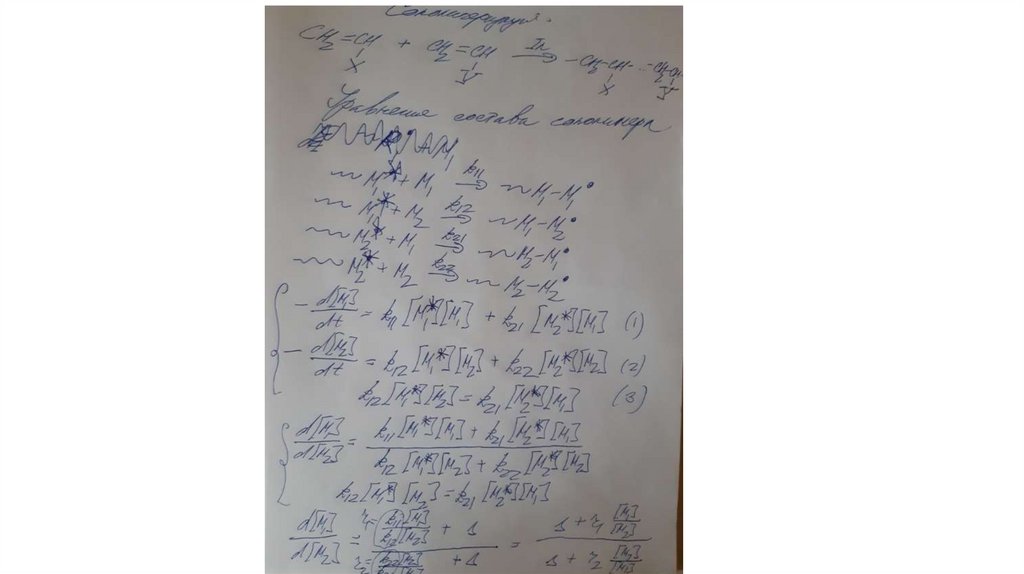 Сополимеризация.
CH₂=CH + CH₂=CH In → –CH₂–CH– ... –CH₂–CH–
X Y X Y
Уравнение состава сополимера
~ M₁* + M₁ k₁₁ → ~ M₁–M₁•
~ M₁* + M₂ k₁₂ → ~ M₁–M₂•
~ M₂* + M₁ k₂₁ → ~ M₂–M₁•
~ M₂* + M₂ k₂₂ → ~ M₂–M₂•
– d[M₁]/dt = k₁₁ [M₁*][M₁] + k₂₁ [M₂*][M₁] (1)
– d[M₂]/dt = k₁₂ [M₁*][M₂] + k₂₂ [M₂*][M₂] (2)
k₁₂ [M₁*][M₂] = k₂₁ [M₂*][M₁] (3)
d[M₁]/d[M₂] = (k₁₁ [M₁*][M₁] + k₂₁ [M₂*][M₁]) / (k₁₂ [M₁*][M₂] + k₂₂ [M₂*][M₂])
k₁₂ [M₁*][M₂] = k₂₁ [M₂*][M₁]
d[M₁]/d[M₂] = (r₁=(k₁₁/k₁₂) [M₁]/[M₂] + 1) / (r₂=(k₂₂/k₂₁) [M₂]/[M₁] + 1) = (1 + r₁ [M₁]/[M₂]) / (1 + r₂ [M₂]/[M₁])